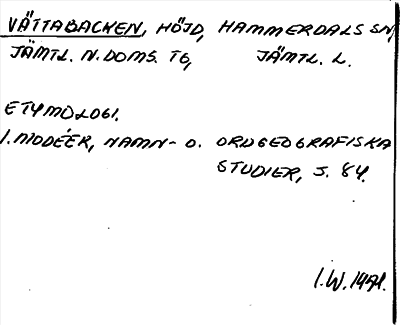 VÄTTABACKEN, HÖJD, HAMMERDALS SN,
JÄMTL. N. DOMS. TG, JÄMTL. L.
ETYMOLOGI.
I. MODÉER, NAMN- O. ORDGEOGRAFISKA
STUDIER, S. 84.
I.W.